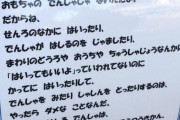 おもちゃの でんしゃ
だからね、
せんろのなかに はいったり、
でんしゃが はしるのを じゃましたり、
まわりのどうろや おうちや ちゅうしゃじょうなんか
「はいってもいいよ」っていわれてないのに
かってに はいったりして、
でんしゃを みたり しゃしんを とったりするのは、
やったら ダメな ことなんだ。
でんしゃは、